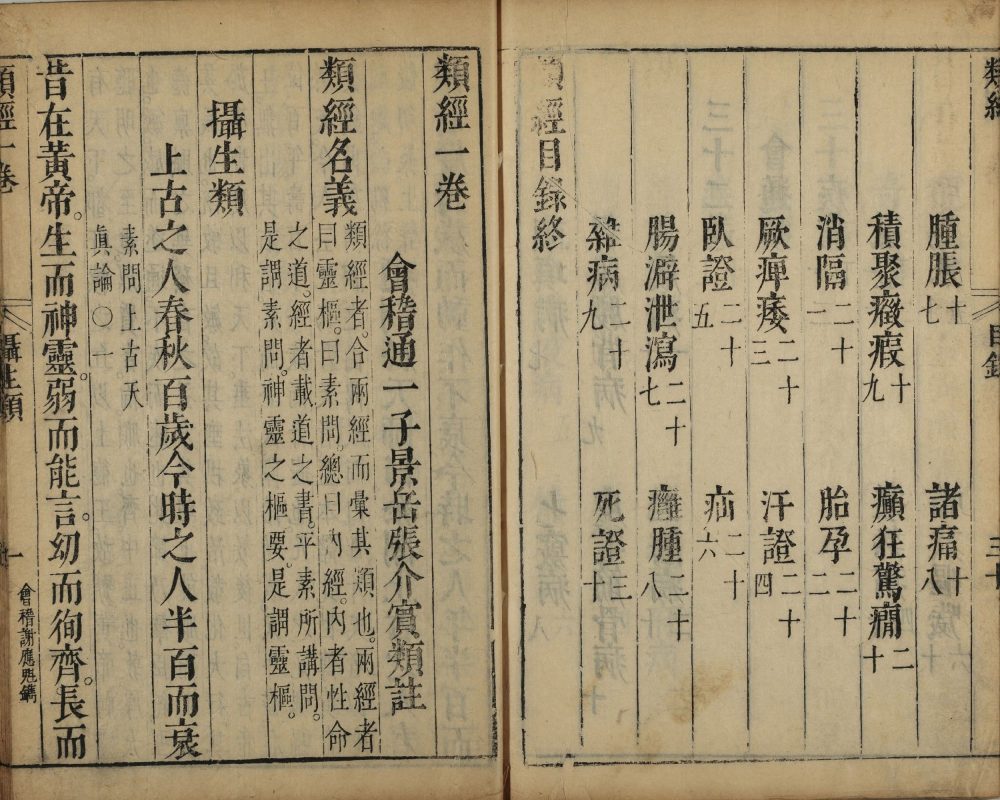 類經
目錄
三十
腫脹十七
諸痛十八
積聚癥瘕十九
癲狂驚癇二十
消隔二十一
胎孕二十二
厥痺痿二十三
汗證二十四
臥證二十五
疝二十六
腸澼泄瀉二十七
癰腫二十八
雜病二十九
死證三十
類經目錄終
類經一卷
會稽通一子景岳張介賓類註
類經名義
類經者合兩經而彙其類也。兩經者
曰靈樞。曰素問。總曰內經。內者性命
之道。經者載道之書。平素所講問。
是謂素問。神靈之樞要。是謂靈樞。
攝生類
上古之人春秋百歲今時之人半百而衰
素問上古天
眞論〇一
昔在黃帝。生而神靈。弱而能言。幼而徇齊。長而
類經一卷
攝生類
一
會稽謝應兆鐫